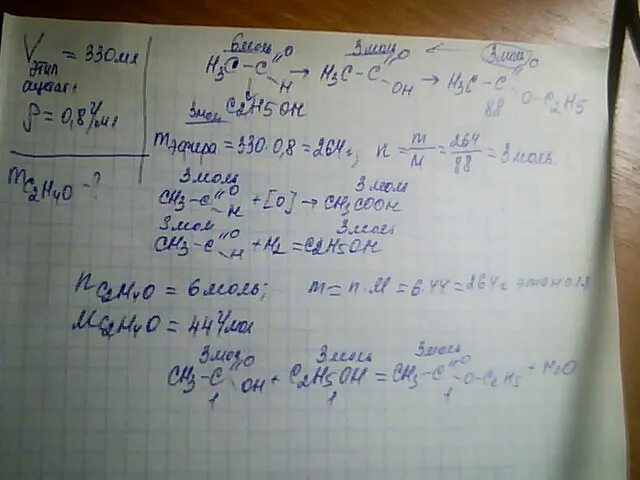 V этил ацетат = 330 мл
ρ = 0,8 г/мл
m C2H4O - ?
6 моль 3 моль 3 моль
H3C-C=O H → H3C-C=O OH → H3C-C=O O-C2H5
3 моль C2H5OH 88
m эфира = 330·0,8 = 264 г, n = m/M = 264/88 = 3 моль
3 моль 3 моль
CH3-C=O H + [O] → CH3COOH
3 моль 3 моль
CH3-C=O H + H2 = C2H5OH
n C2H4O = 6 моль; m = n·M = 6·44 = 264 г
M C2H4O = 44 г/мол
3 моль 3 моль 3 моль
CH3-C=O OH + C2H5OH = CH3-C=O O-C2H5 + H2O
1 1 1